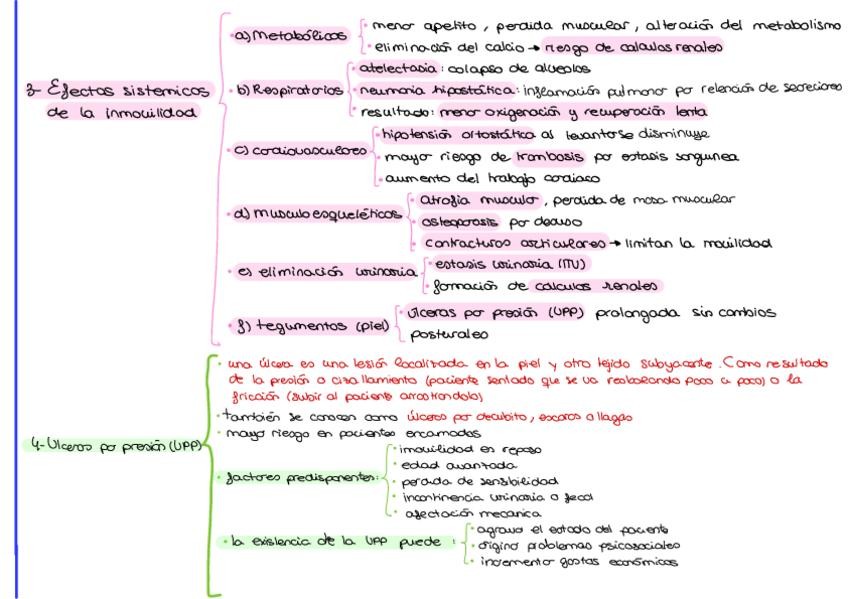 3- Efectos sistemicos
de la inmovilidad
a) Metabólicos
• menor apetito, perdida muscular, alteración del metabolismo
• eliminación del calcio → riesgo de calculos renales
b) Respiratorios
• atelectasia: colapso de alveolos
• neumonia hipostática: inflamación pulmonar por retención de secreciones
• resultado: menor oxigenación y recuperación lenta
c) cardiovasculares
• hipotensión ortostática al levantarse disminuye
• mayor riesgo de trombosis por estasis sanguinea
• aumento del trabajo cardiaco
d) musculoesqueléticos
• atrofia muscular, perdida de masa muscular
• osteoporosis por desuso
• contracturas articulares → limitan la movilidad
e) eliminación urinaria
• estasis urinaria (ITU)
• formación de calculos renales
f) tegumentos (piel)
• úlceras por presión (UPP) prolongada sin cambios
posturales
4- Ulceras por presión (UPP)
• una úlcera es una lesión localizada en la piel y otro tejido subyacente. Como resultado
de la presión o cizallamiento (paciente sentado que se va resbalando poco a poco) o la
fricción (subir al paciente arrastrandolo)
• también se conocen como úlceras por decúbito, escaras o llagas
• mayor riesgo en pacientes encamados
• factores predisponentes:
• inmovilidad en reposo
• edad avanzada
• perdida de sensibilidad
• incontinencia urinaria o fecal
• afectación mecanica
• la existencia de la UPP puede:
• agravar el estado del paciente
• origina problemas psicosociales
• incremento gastos económicos